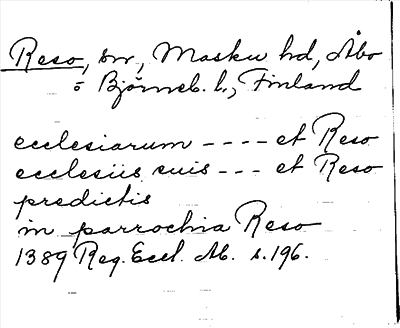 Reso, sn, Masku hd, Åbo
o Björneb. l., Finland
ecclesiarum ---- et Reso
ecclesiis suis --- et Reso
predictis
in parrochia Reso
1389 Reg. Eccl. Ab. s. 196.